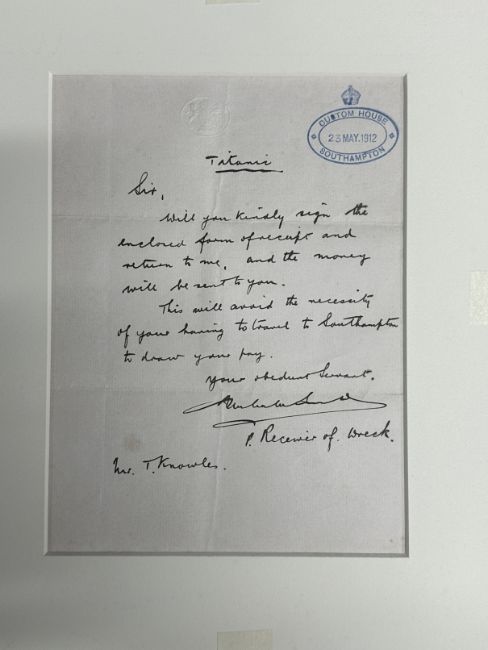 CUSTOM HOUSE
23 MAY.1912
SOUTHAMPTON
Titanic
Sir,
Will you kindly sign the
enclosed form of receipt and
return to me, and the money
will be sent to you.
This will avoid the necessity
of your having to travel to Southampton
to draw your pay.
Your obedient Servant.
P. Receiver of Wreck.
Mr. T. Knowles.